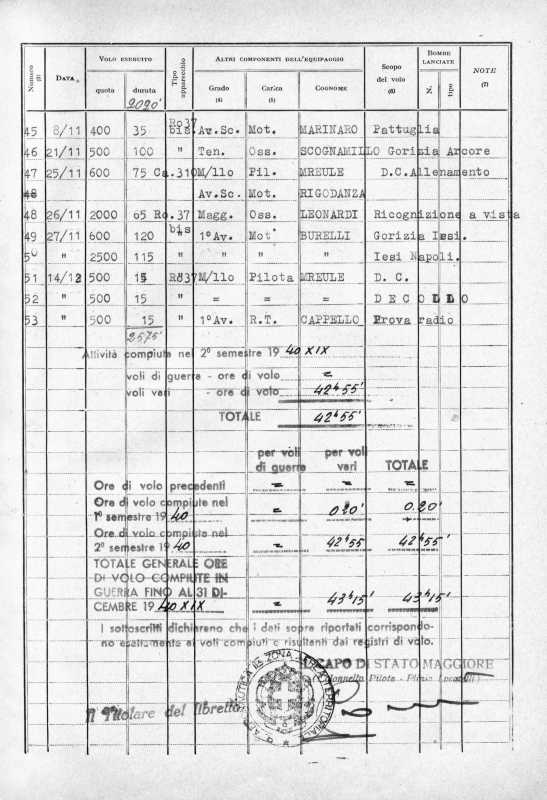 Numero (2) DATA VOLO ESEGUITO quota durata Tipo apparecchio ALTRI COMPONENTI DELL'EQUIPAGGIO Grado (4) Carica (5) COGNOME Scopo del volo (6) BOMBE LANCIATE N. tipo NOTE (7)
2020'
45 8/11 400 35 Ro37 bis. Av.Sc. Mot. MARINARO Pattuglia
46 21/11 500 100 " Ten. Oss. SCOGNAMILLO Gorizia Arcore
47 25/11 600 75 Ca.310 M/llo Pil. MREULE D.C.Allenamento
48 Av.Sc. Mot. RIGODANZA
48 26/11 2000 65 Ro.37 bis Magg. Oss. LEONARDI Ricognizione a vista
49 27/11 600 120 " 1°Av. Mot. BURELLI Gorizia Iesi.
50 " 2500 115 " " " " Iesi Napoli.
51 14/12 500 15 Ro37 M/llo Pilota MREULE D. C.
52 " 500 15 " = = = DECOLLO
53 " 500 15 " 1°Av. R.T. CAPPELLO Prova radio
2575'
Attività compiuta nel 2° semestre 19 40 XIX
voli di guerra - ore di volo =
voli vari - ore di volo 42h 55'
TOTALE 42h 55'
per voli di guerra per voli vari TOTALE
Ore di volo precedenti = = =
Ore di volo compiute nel
1° semestre 19 40 = 0.20' 0.20'
Ore di volo compiute nel
2° semestre 19 40 = 42h55 42h55'
TOTALE GENERALE ORE
DI VOLO COMPIUTE IN
GUERRA FINO AL 31 DI-
CEMBRE 19 40 XIX = 43h15' 43h15'
I sottoscritti dichiarano che i dati sopra riportati corrispondo-
no esattamente ai voli compiuti e risultanti dai registri di volo.
CAPO DI STATO MAGGIORE
(Colonnello Pilota
Il Titolare del libretto